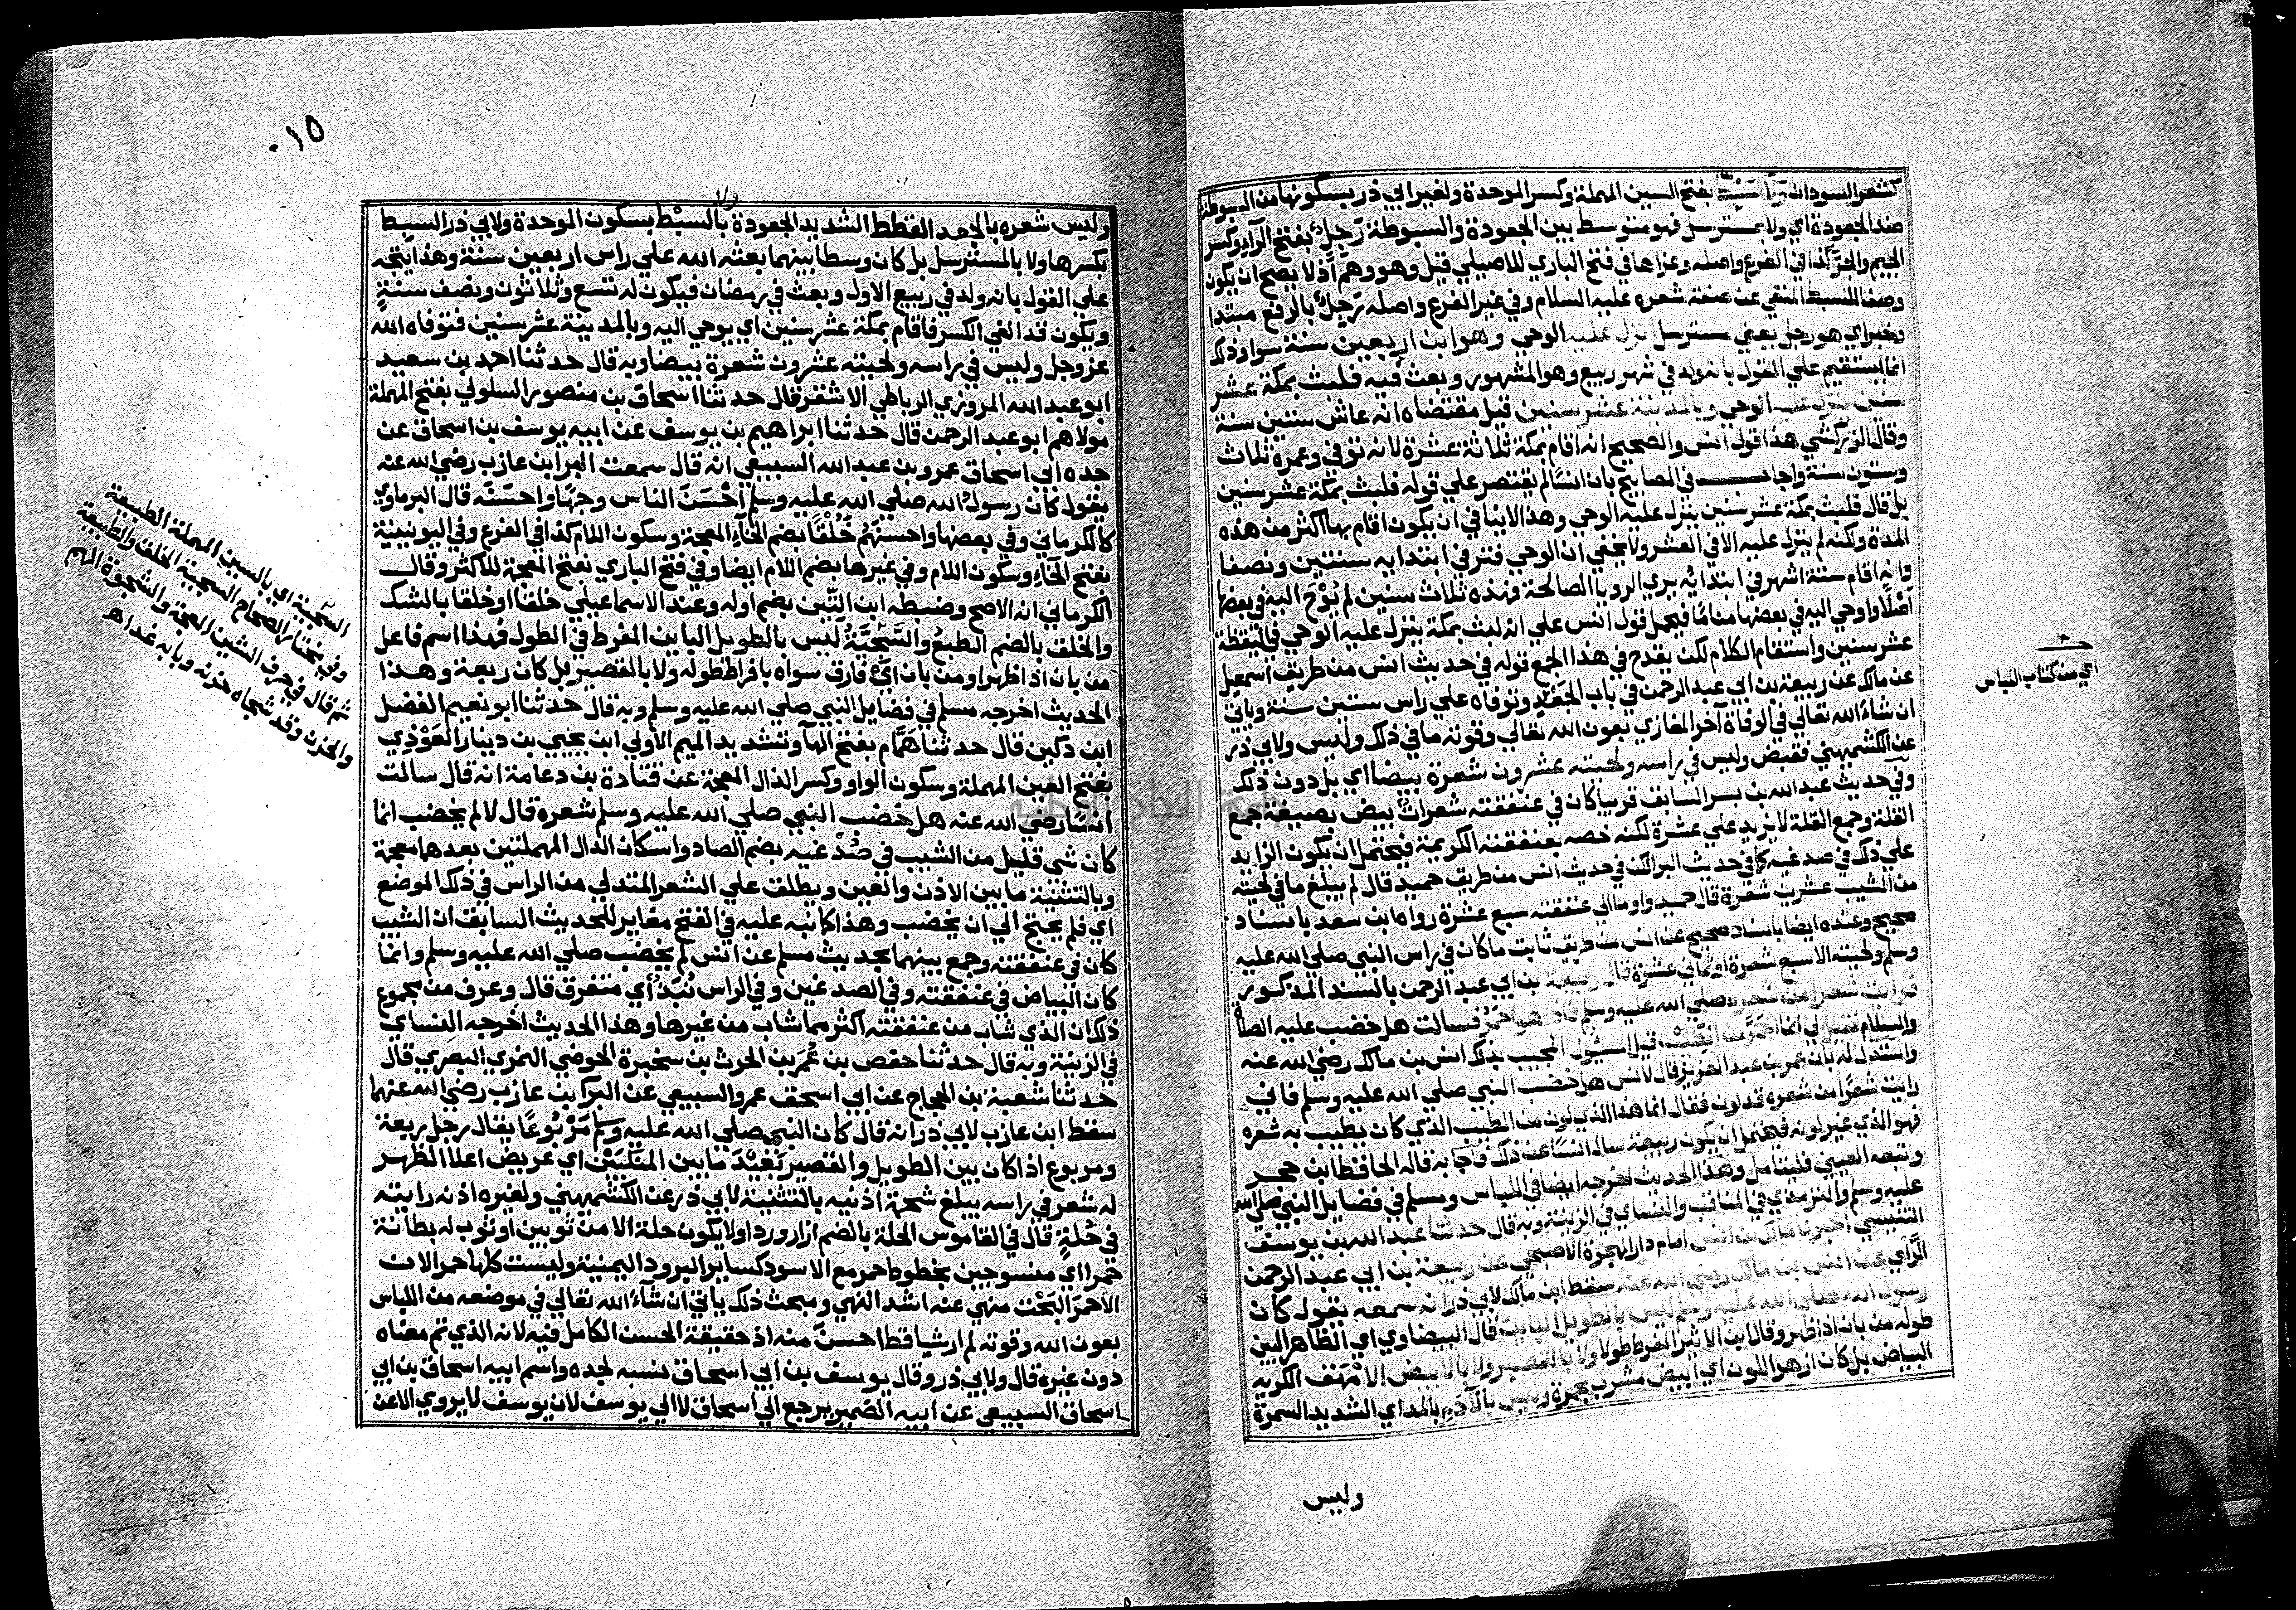 كشعر السودان ولا سبط بفتح السين المهملة وكسر الموحدة ولغير ابي ذر بسكونها من السبوطة
ضد الجعودة اي ولا بمسترسل فهو متوسط بين الجعودة والسبوطة رَجِلٍ بفتح الرآء وكسر
الجيم والجرّ كذا في الفرع واصله وعزاها في فتح الباري للاصيلي قيل وهو وهم اذ لا يصح ان يكون
وصفا للسبط المنفي عن صفة شعره عليه السلام وفي غير الفرع واصله رَجِلٌ بالرفع مبتدا
وخبر اي هو رجل يعني مسترسل انزل عليه الوحي وهو ابن اربعين سنة سوا وذلك
انما يستقيم علي القول بانه ولد في شهر ربيع وهو المشهور وبعث فيه فلبث بمكة عشر
سنين ينزل عليه الوحي وبالمدينة عشر سنين قيل مقتضاه انه عاش ستين سنة
وقال الزركشي هذا قول انس والصحيح انه اقام بمكة ثلاثة عشرة لانه توفي وعمره ثلاث
وستون سنة واجاب في المصابيح بان انسا لم يقتصر علي قوله فلبث بمكة عشر سنين
بل قال فلبث بمكة عشر سنين ينزل عليه الوحي وهذا لا ينافي ان يكون اقام بها اكثر من هذه
المدة ولكنه لم ينزل عليه الا في العشر ولا يخفي ان الوحي فتر في ابتدايه سنتين ونصفا
وانه اقام ستة اشهر في ابتدائه يري الرويا الصالحة فهذه ثلاث سنين لم يُوْحَ اليه في بعضها
اصلا واوحي اليه في بعضها مناما فيحمل قول انس علي انه لبث بمكة ينزل عليه الوحي في اليقظة
عشر سنين واستقام الكلام لكن يقدح في هذا الجمع قوله في حديث انس من طريق اسمعيل
عن مالك عن ربيعة بن ابي عبد الرحمن في باب الجعد وتوفاه علي راس ستين سنة وياتي
ان شاءَ الله تعالي في الوفاة آخر المغازي بعون الله تعالي وقوته ما في ذلك وليس ولابي ذر
عن الكشميهني فقبض وليس في راسه ولحيته عشرون شعرة بيضا اي بل دون ذلك
وفي حديث عبد الله بن بسر السابق قريبا كان في عنفقته شعرات بيض بصيغة جمع
القلة وجمع القلة لا يزيد علي عشرة لكنه خصه بعنفقته الكريمة فيحتمل ان يكون الزايد
علي ذلك في صدغيه كما في حديث البرا لكن في حديث انس من طريق حميد قال لم يبلغ ما في لحيته
من الشيب عشرين شعرة قال حميد واوما الي عنفقته سبع عشرة رواه ابن سعد باسناد
صحيح وعنده ايضا باسناد صحيح عن انس من طريق ثابت ما كان في راس النبي صلي الله عليه
وسلم ولحيته الا سبع عشرة او ثماني عشرة قال ربيعة بن ابي عبد الرحمن بالسند المذكور
فرايت شعرا من شعره صلي الله عليه وسلم فاذا هو احمر فسالت هل خضب عليه الصلاة
والسلام فقيل لي انما احمَرَّ من الطيب قيل المسئول المجيب بذلك انس بن مالك رضي الله عنه
واستدل له بان عمر بن عبد العزيز قال لانس هل خضب النبي صلي الله عليه وسلم فاني
رايت شعرا من شعره قد لون فقال انما هذا الذي لون من الطيب الذي كان يطيب به شعره
فهو الذي غير لونه فيحتمل ان يكون ربيعة سال انسا عن ذلك فاجابه قاله الحافظ ابن حجر
وتبعه العيني فليتامل وهذا الحديث اخرجه ايضا في اللباس ومسلم في فضايل النبي صلي الله
عليه وسلم والترمذي في المناقب والنساي في الزينة وبه قال حدثنا عبد الله بن يوسف
التنيسي اخبرنا مالك بن انس امام دار الهجرة الاصبحي عن ربيعة بن ابي عبد الرحمن
الرَّأي عن انس بن مالك رضي الله عنه سقط ابن مالك لابي ذر انه سمعه يقول كان
رسول الله صلي الله عليه وسلم ليس بالطويل البائن قال البيضاوي اي الظاهر البين
طوله من بان اذا ظهر وقال ابن الاثير المفرط طولا ولا بالقصير ولا بالابيض الامْهَق الكريه
البياض بل كان ازهر اللون اي ابيض مشرب بحمرة وليس بالآدَم بالمد اي الشديد السمرة
وليس
اي من كتاب اللباس
٠١٥
ولا
وليس شعره بالجعد القطط الشديد الجعودة بالسبْط بسكون الموحدة ولابي ذر السبط
بكسرها ولا بالمسترسل بل كان وسطا بينهما بعثه الله علي راس اربعين سنة وهذا يتجه
علي القول بانه ولد في ربيع الاول وبعث في رمضان فيكون له تسع وثلاثون ونصف سنةٍ
ويكون قد الغي الكسر فاقام بمكة عشر سنين اي يوحي اليه وبالمدينة عشر سنين فتوفاه الله
عز وجل وليس في راسه ولحيته عشرون شعرة بيضا وبه قال حدثنا احمد بن سعيد
ابو عبد الله المروزي الرباطي الاشقر قال حدثنا اسحاق بن منصور السلولي بفتح المهملة
مولاهم ابو عبد الرحمن قال حدثنا ابراهيم بن يوسف عن ابيه يوسف بن اسحاق عن
جده ابي اسحاق عمرو بن عبد الله السبيعي انه قال سمعت البرا بن عازب رضي الله عنه
يقول كان رسول الله صلي الله عليه وسلم احْسَنَ الناس وجهًا واحسَنَه قال البرماوي
كالكرماني وفي بعضها واحسنهُمْ خُلْقًا بضم الخاءِ المعجمة وسكون اللام كذا في الفرع وفي اليونينية
بفتح الخاءِ وسكون اللام وفي غيرها بضم اللام ايضا وفي فتح الباري بفتح المعجمة للاكثر وقال
الكرماني انه الاصح وضبطه ابن التِّين بضم اوله وعند الاسماعيلي خلقا او خلقا بالشك
والخلق بالضم الطبعُ والسَّجيَّةُ ليس بالطويل الباين المفرط في الطول فهذا اسم فاعل
من بان اذا ظهر او من بان ايْ فارق سواه بافراط طوله ولا بالقصير بل كان ربعة وهذا
الحديث اخرجه مسلم في فضايل النبي صلي الله عليه وسلم وبه قال حدثنا ابو نعيم الفضل
ابن دكين قال حدثنا هَمَّام بفتح الهآ وتشديد الميم الاولي ابن يحيي بن دينار العَوْذي
بفتح العين المهملة وسكون الواو وكسر الذال المعجمة عن قتادة بن دعامة انه قال سالت
انسًا رضي الله عنه هل خضب النبي صلي الله عليه وسلم شعره قال لا لم يخضب انما
كان شي قليل من الشيب في صُدْغيه بضم الصاد واسكان الدال المهملتين بعدهما معجمة
وبالتثنية ما بين الاذن والعين ويطلق علي الشعر المتدلي من الراس في ذلك الموضع
اي فلم يحتج الي ان يخضب وهذا كما نبه عليه في الفتح مغاير للحديث السابق ان الشيب
كان في عنفقته وجمع بينهما بحديث مسلم عن انس لم يخضب صلي الله عليه وسلم وانما
كان البياض في عنفقته وفي الصدغين وفي الراس نُبَذٌ أي متفرق قال وعرف من مجموع
ذلك ان الذي شاب من عنفقته اكثر مما شاب من غيرها وهذا الحديث اخرجه النساي
في الزينة وبه قال حدثنا حفص بن عُمَر بن الحرث بن سخبرة الحوضي النمري البصري قال
حدثنا شعبة ابن الحجاج عن ابي اسحق عمرو السبيعي عن البرا بن عازب رضي الله عنهما
سقط ابن عازب لابي ذر انه قال كان النبي صلي الله عليه وسلم مَرْبُوعًا يقال رجل ربعة
ومربوع اذا كان بين الطويل والقصير بَعِيْدَ ما بين المَنكِبَيْن اي عريض اعلا الظهر
له شعر في راسه يبلغ شحمة اذنيه بالتثنية لابي ذر عن الكشميهني ولغيره اذنه رايته
في حُلةٍ قال في القاموس الحلة بالضم ازار ورداو لا يكون حلة الا من ثوبين او ثوب له بطانة
حمرا اي منسوجين بخطوط حمر مع الاسود كساير البرود اليمنية وليست كلها حمرا لان
الاحمرَ البَحْتَ منهي عنه اشد النهي ومبحث ذلك ياتي ان شاءَ الله تعالي في موضعه من اللباس
بعون الله وقوته لم ار شيا قط احسنَ منه اذ حقيقة الحسن الكامل فيه لانه الذي تم معناه
دون غيره قال ولابي ذر وقال يوسف بن ابي اسحاق نسبه لجده واسم ابيه اسحاق بن ابي
اسحاق السبيعي عن ابيه الضمير يرجع الي اسحاق لا الي يوسف لان يوسف لا يروي الا عن
السجية اي بالسين المهملة الطبيعة
وفي مختار الصحاح السجية الخلق والطبيعة
ثم قال في حرف الشين المعجمة والشجوة الهم
والحزن وقد شجاه حزنه وبابه عدا اهـ